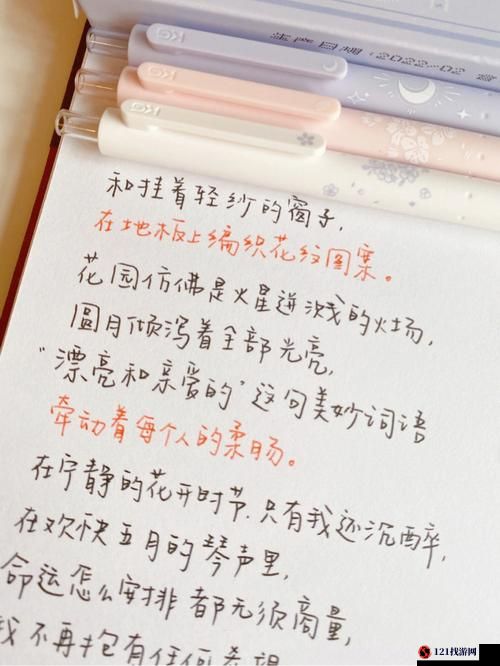 生产日期:2022-02
和挂着轻纱的窗子,
在地板上编织花纹图案。
花园仿佛是火星迸溅的火场,
圆月倾泻着全部光亮,
“漂亮和亲爱的”这句美妙词语
牵动着每个人的柔肠。
在宁静的花开时节,只有我还沉醉,
在欢快五月的琴声里,
命运怎么安排都无须商量,
我不再抱有任何希望
121找游网